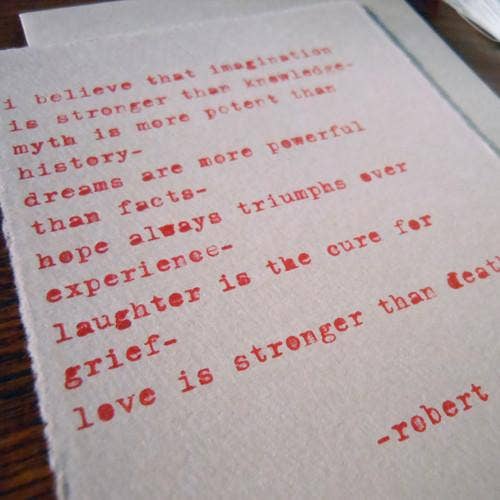 i believe that imagination
is stronger than knowledge-
myth is more potent than
history-
dreams are more powerful
than facts-
hope always triumphs over
experience-
laughter is the cure for
grief-
love is stronger than death
-robert